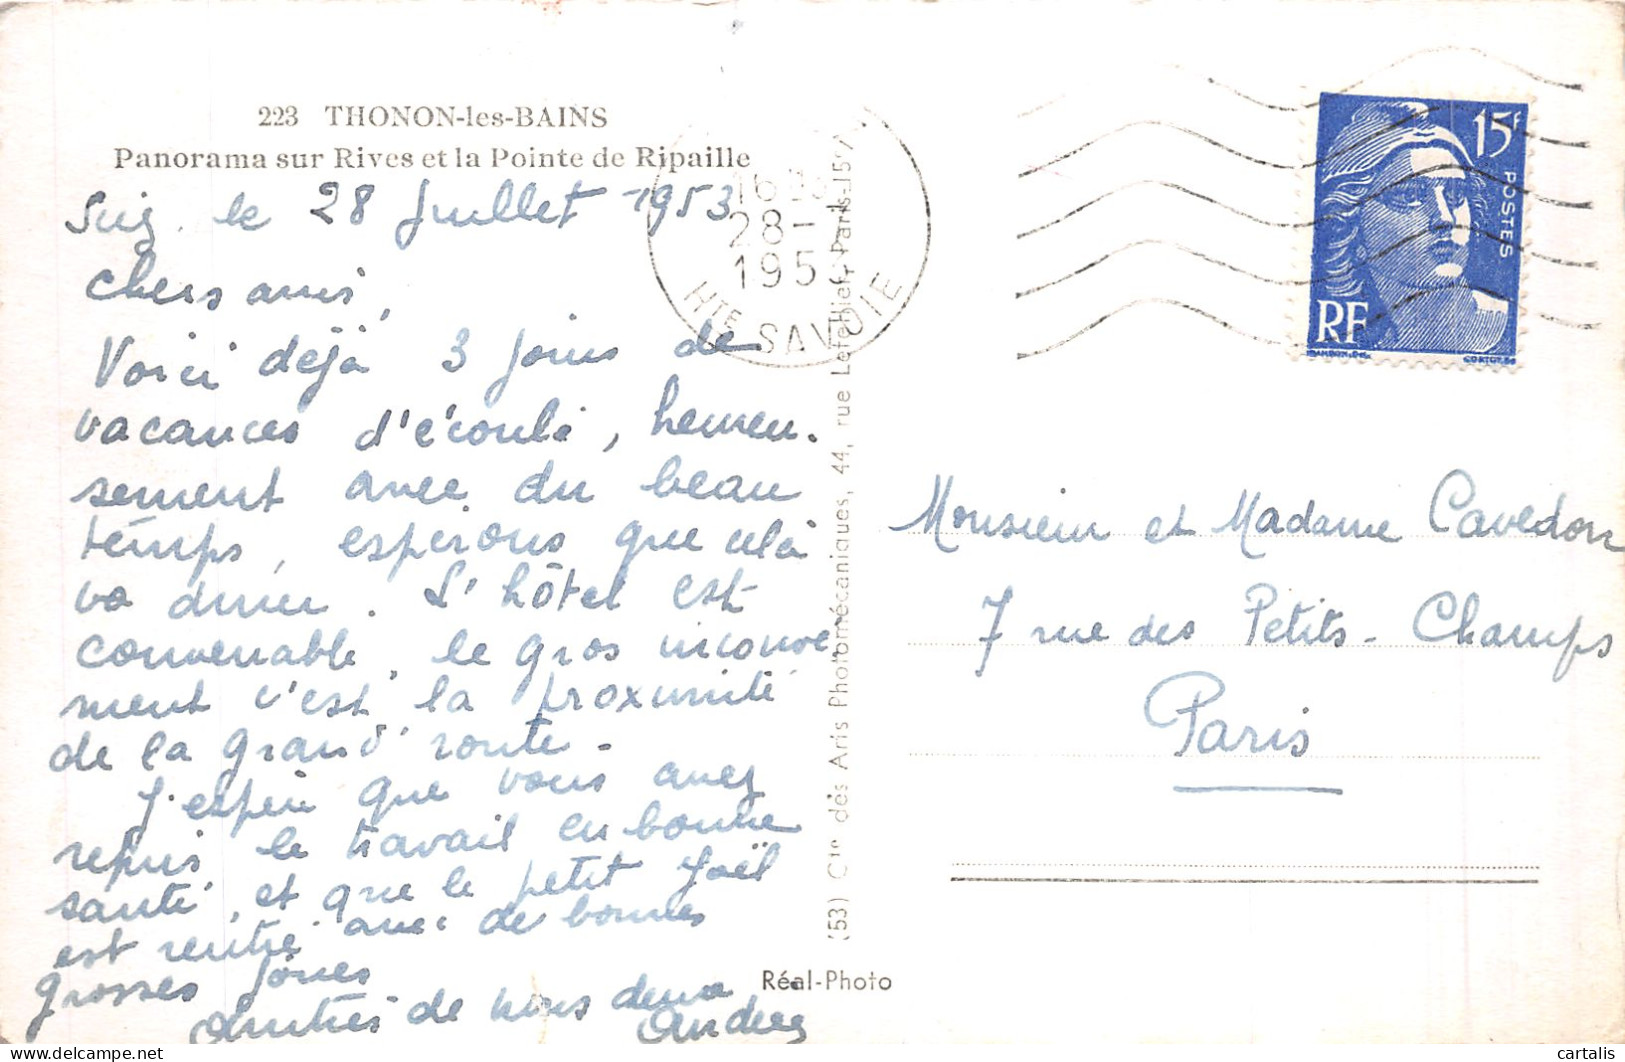 223 THONON-les-BAINS
Panorama sur Rives et la Pointe de Ripaille
le 28 juillet 1953
Chers amis,
Voici déjà 3 jours de
vacances d'écoulé, heureu-
sement avec du beau
temps, espérons que celà
va durer. L'hôtel est
convenable, le gros inconve
ment c'est la proximité
de la grand' route -
J'espère que vous avez
repris le travail en bonne
santé, et que le petit Joël
est rentré avec de bonnes
grosses joues
Amitiés de nous deux
16
28-
195
HTE SAVOIE
(53) Cie des Arts Photomécaniques, 44, rue Letellier, Paris-15e
Réal-Photo
15F
POSTES
RF
GANDON-DEL.
CORTOT-SC
Monsieur et Madame Cavedon
7 rue des Petits-Champs
Paris
cartalis